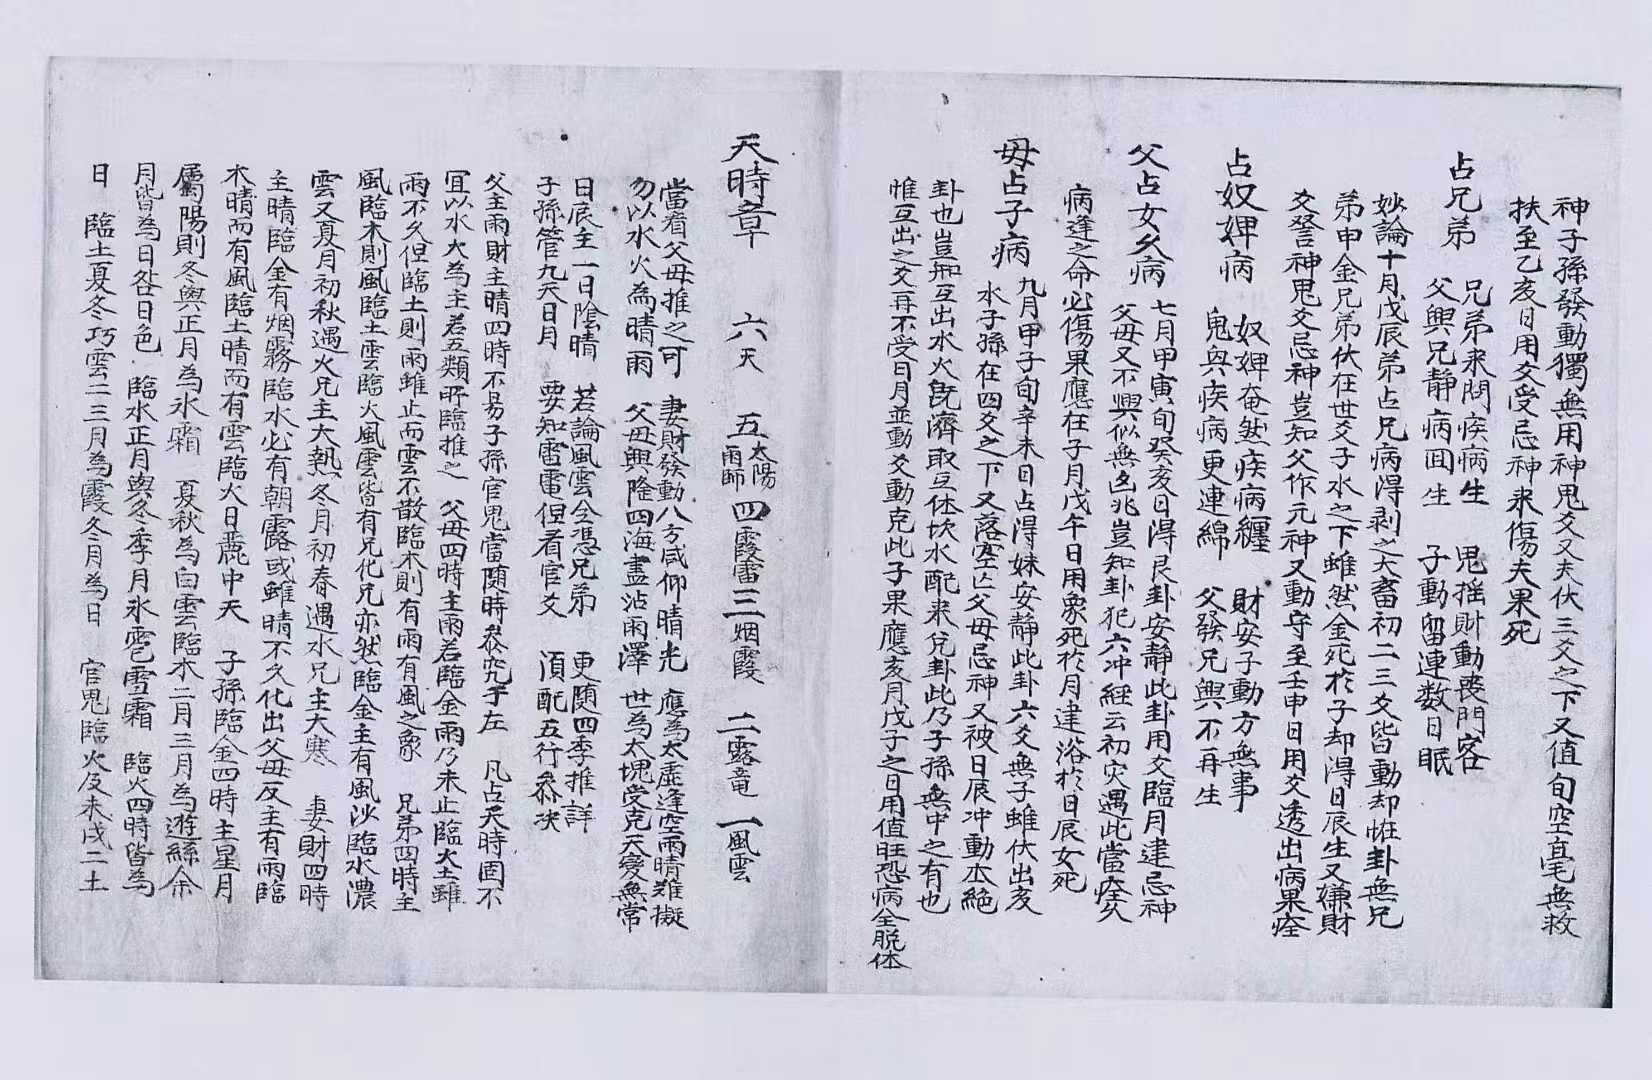 神子孫發動獨無用神鬼爻又夫伏三爻之下又值旬空真宅無救
扶至乙亥日用爻受忌神来傷夫果死
占兄弟　兄弟来問疾病生　鬼搖財動喪門客
父興兄静病囬生　子動留連数日眠
妙論十月戊辰弟占兄病淂剥之大畜初二三爻皆動却恠卦無兄
弟申金兄弟伏在世爻子水之下雖然金死於子却淂日辰生又嫌財
爻詧神鬼爻忌神豈知父作元神又動守至壬申日用爻透出病果痊
占奴婢病　奴婢奄然疾病纏　財安子動方無事
鬼與疾病更連綿　父發兄興不再生
父占女久病　七月甲寅旬癸亥日淂艮卦安静此卦用爻臨月建忌神
父母又不興似無凶兆豈知卦犯六冲經云初灾遇此當痊久
病逢之命必傷果應在子月戊午日用象死於月建浴於日辰女死
母占子病　九月甲子旬辛未日占得妹安静此卦六爻無子雖伏出亥
水子孫在四爻之下又落空亡父母忌神又被日辰冲動本絶
卦也豈知互出水火旣濟取互体坎水配来兊卦此乃子孫無中之有也
惟互出之爻再不受日月並動爻動克此子果應亥月戊子之日用值旺恐病全脱体
天時章　六天　五太陽雨師　四霞雷　三烟霞　二露竜　一風雲
當看父母推之可　妻財發動八方咸仰晴光　應為太虛逢空雨晴难擬
勿以水火為晴雨　父母興隆四海盡沾雨澤　世為大塊受克天變無常
日辰主一日陰晴　若論風雲全憑兄弟　更随四季推詳
子孫管九天日月　要知雷電但看官爻　湏配五行叅决
父主雨財主晴四時不易子孫官鬼當随時叅究于左　凡占天時固不
冝以水火為主若五類所臨推之　父母四時主雨若臨金雨乃未止臨火土雖
雨不久但臨土則雨雖止而雲不散臨木則有雨有風之象　兄弟四時主
風臨木則風臨土雲臨火風雲皆有兄化兄亦然臨金主有風沙臨水濃
雲又夏月初秋遇火兄主大熱冬月初春遇水兄主大寒　妻財四時
主晴臨金有烟霧臨水必有朝露或雖晴不久化出父母反主有雨臨
木晴而有風臨土晴而有雲臨火日麗中天　子孫臨金四時主星月
屬陽則冬與正月為氷霜　夏秋為白雲臨木二月三月為遊絲余
月皆為日咎日色　臨水正月與冬季月氷雹雪霜　臨火四時皆為
日　臨土夏冬巧雲二三月為霞冬月為日　官鬼臨火及未戌二土